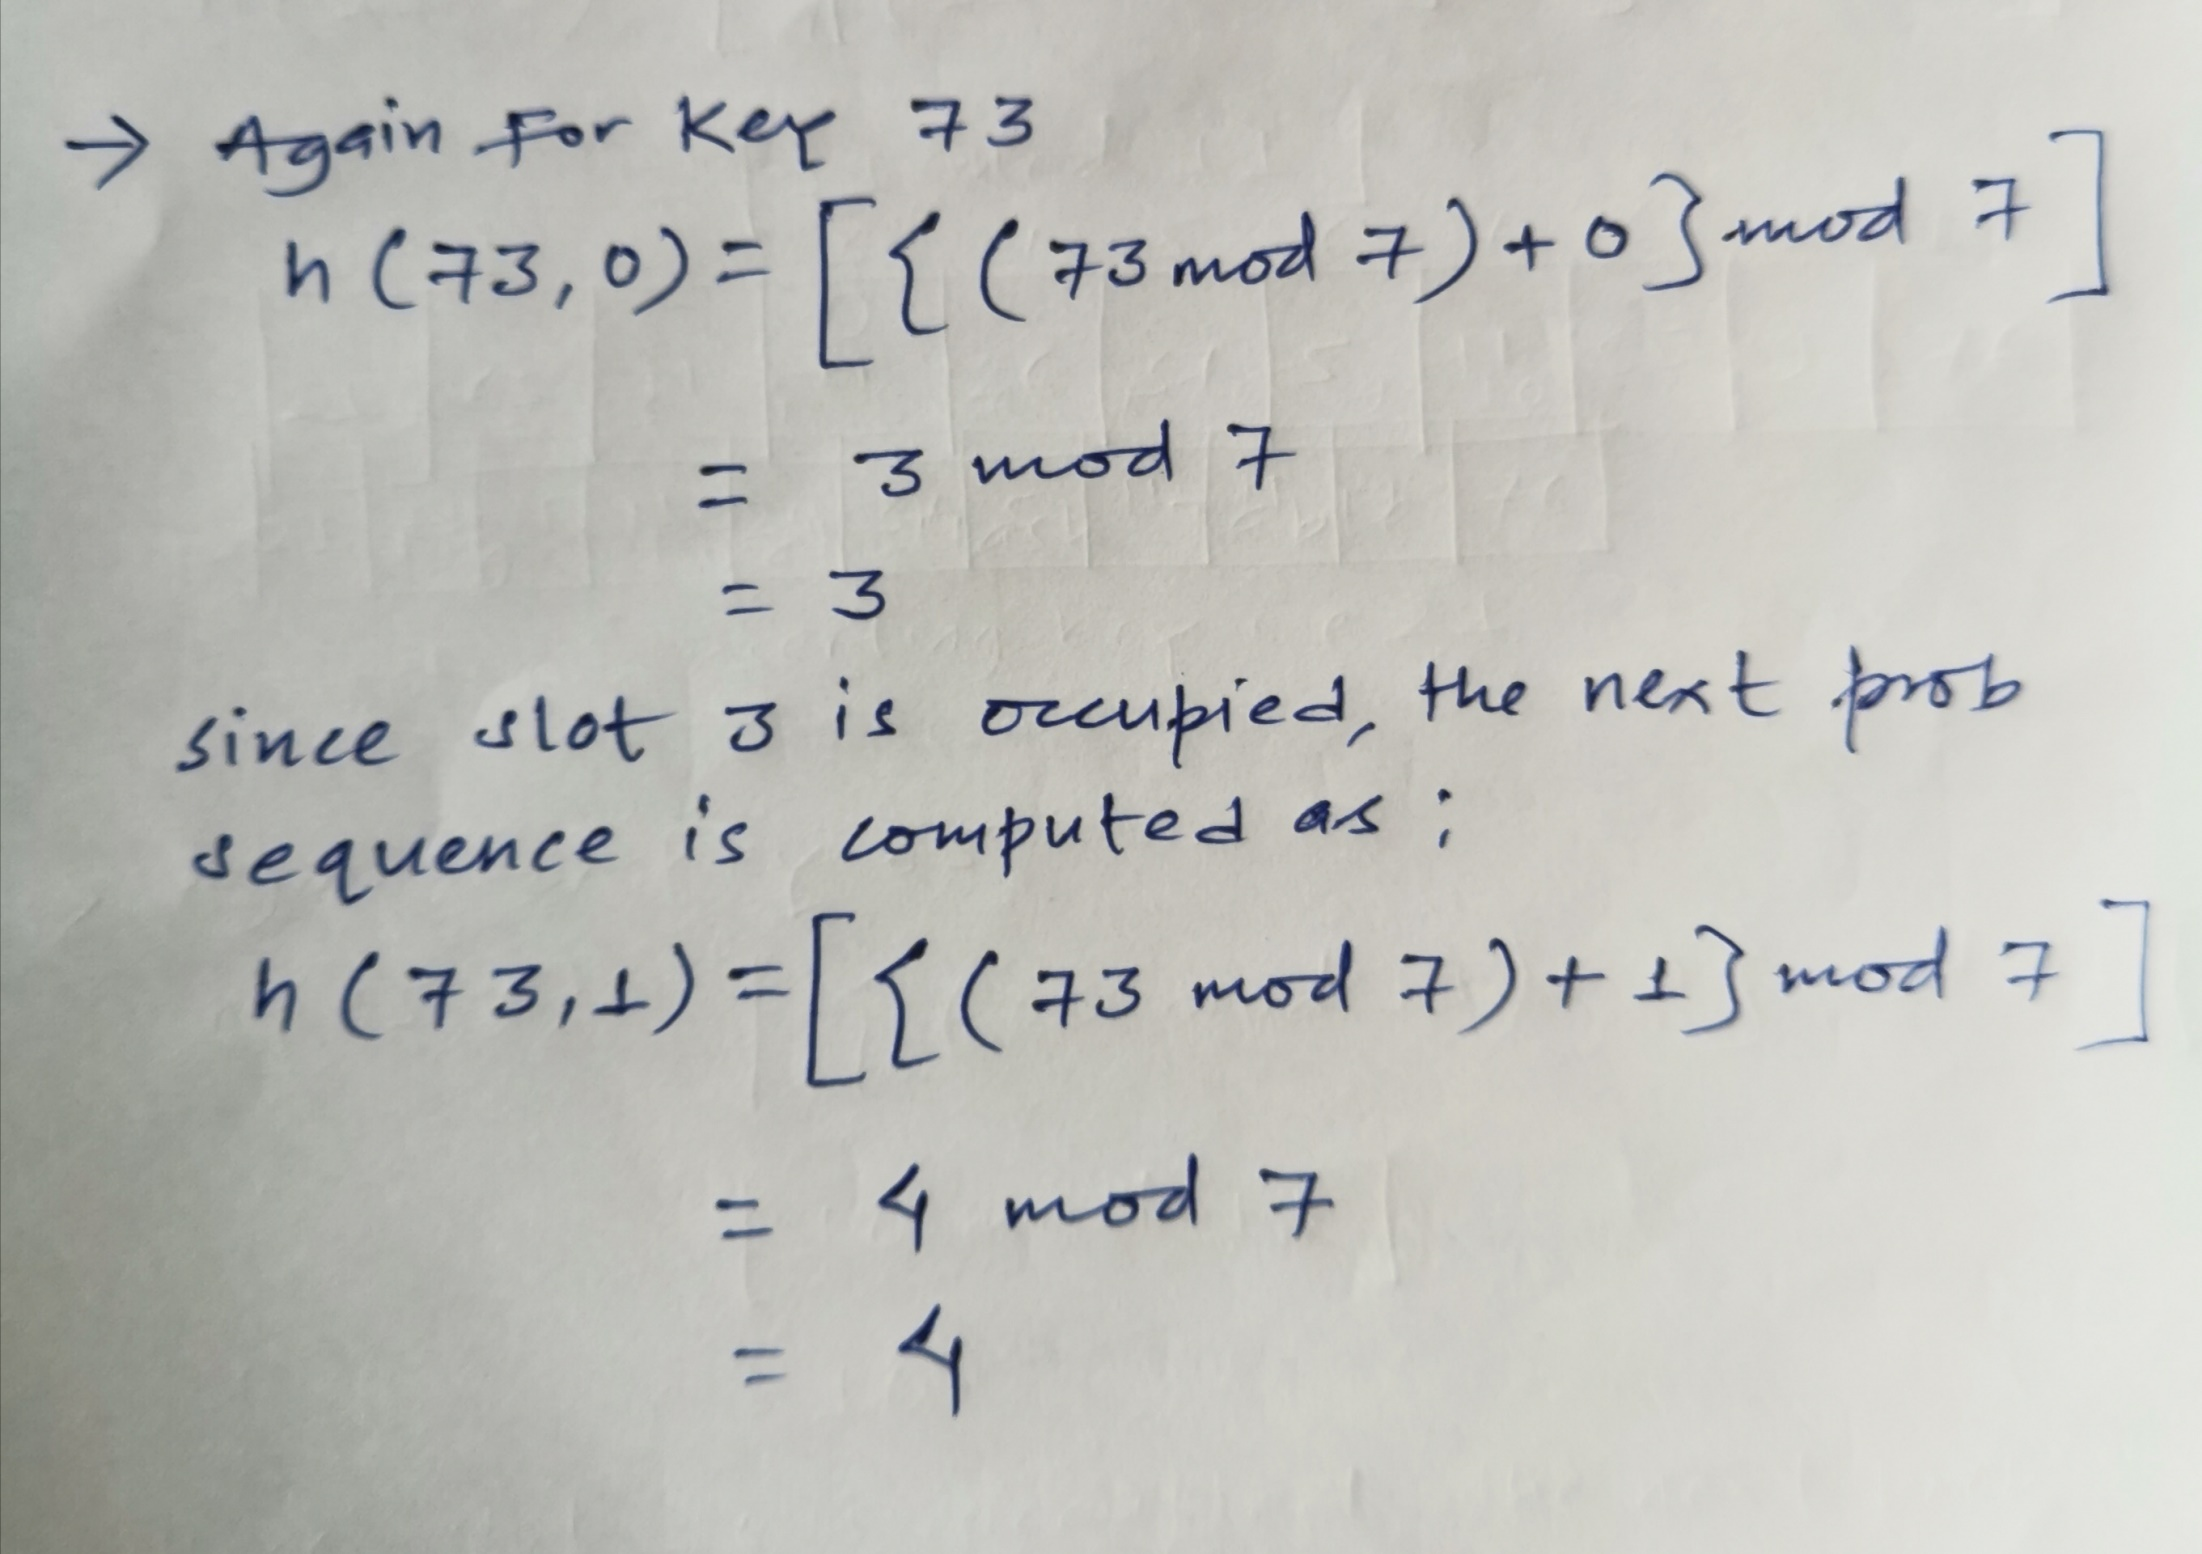 → Again For Key 73
h(73,0)=[{(73 mod 7)+0}mod 7]
= 3 mod 7
= 3
since slot 3 is occupied, the next prob
sequence is computed as;
h(73,1)=[{(73 mod 7)+1}mod 7]
= 4 mod 7
= 4